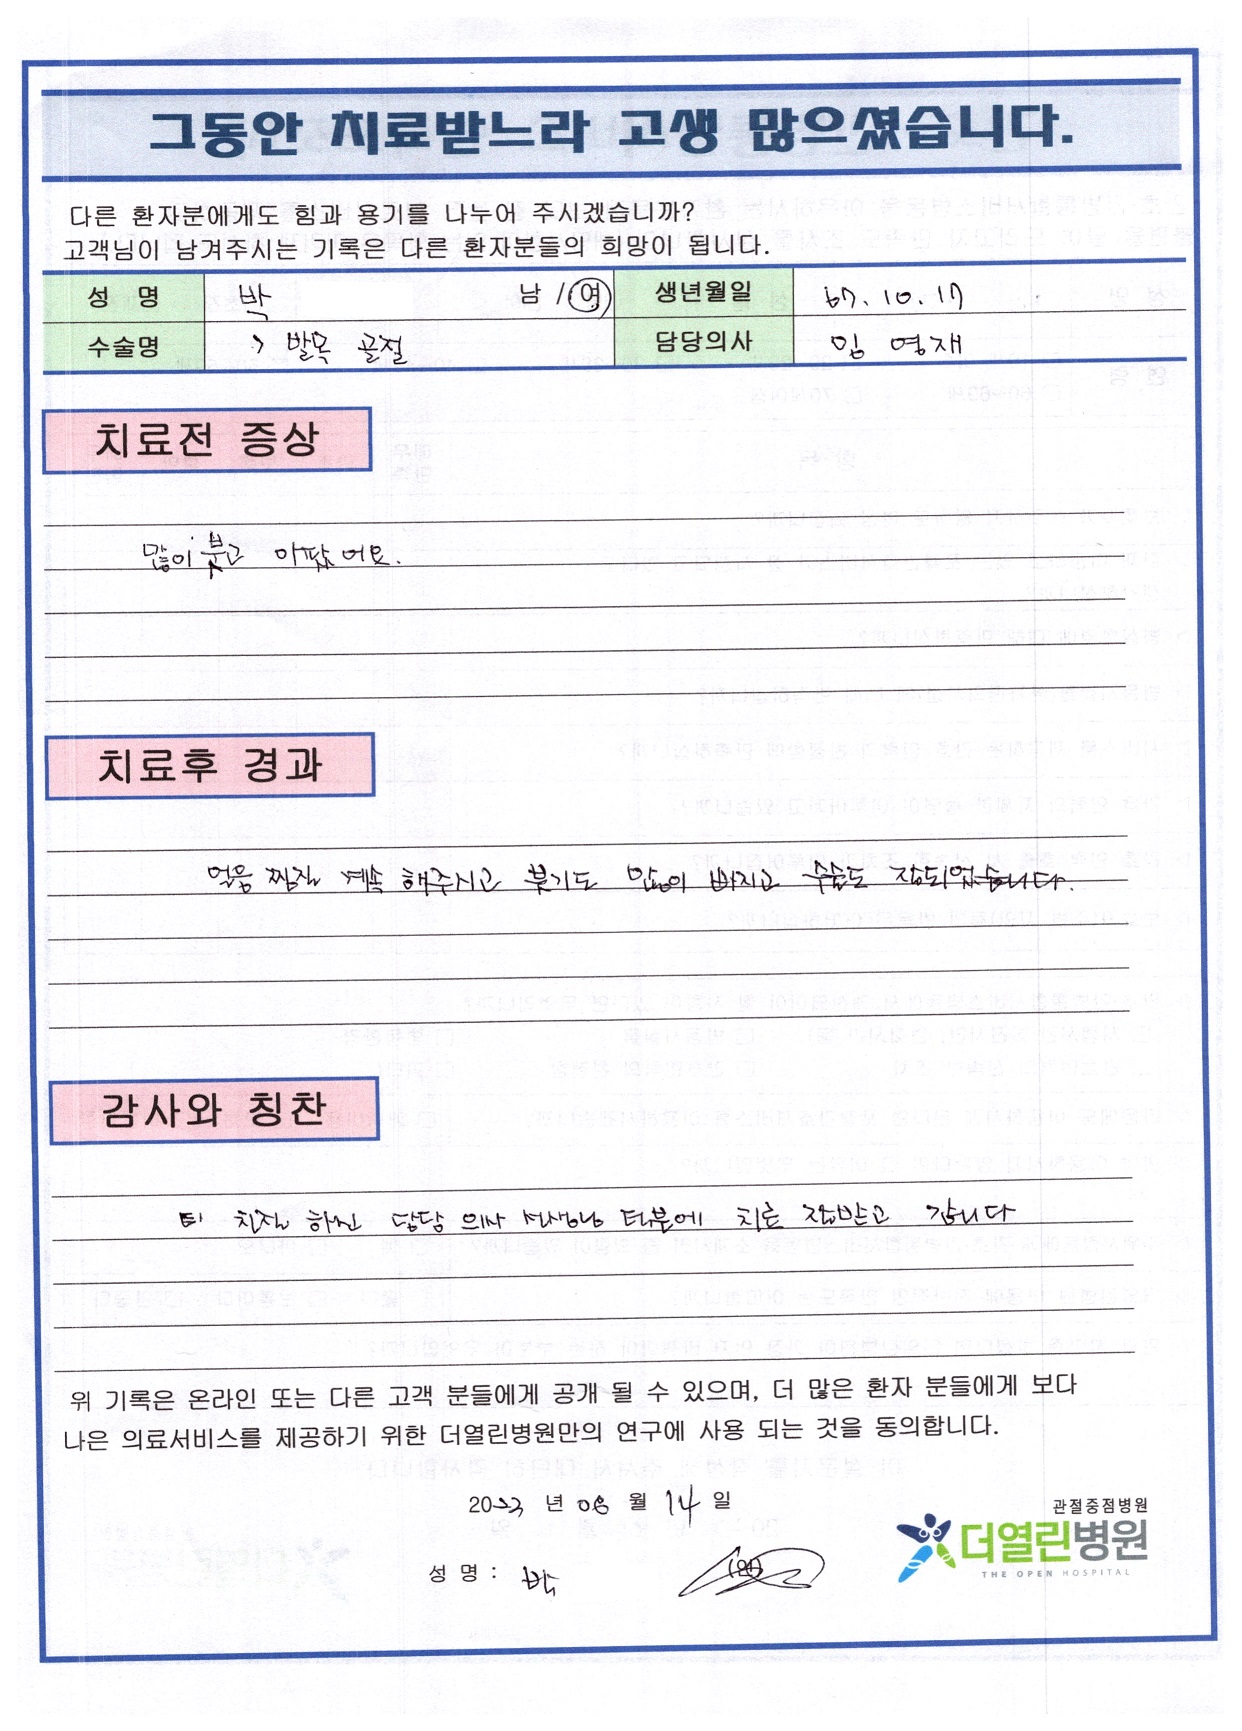 그동안 치료받느라 고생 많으셨습니다.
다른 환자분에게도 힘과 용기를 나누어 주시겠습니까?
고객님이 남겨주시는 기록은 다른 환자분들의 희망이 됩니다.
성 명 박 남 / 여 생년월일 67. 10. 17
수술명 발목 골절 담당의사 임 영재
치료전 증상
많이 붓고 아팠어요.
치료후 경과
얼음 찜질 계속 해주시고 붓기도 많이 빠지고 수술도 잘되었습니다.
감사와 칭찬
친절 하신 담당 의사 선생님 덕분에 치료 잘받고 갑니다
위 기록은 온라인 또는 다른 고객 분들에게 공개 될 수 있으며, 더 많은 환자 분들에게 보다
나은 의료서비스를 제공하기 위한 더열린병원만의 연구에 사용 되는 것을 동의합니다.
2023 년 08 월 14 일
관절중점병원
더열린병원
THE OPEN HOSPITAL
성 명 : 박